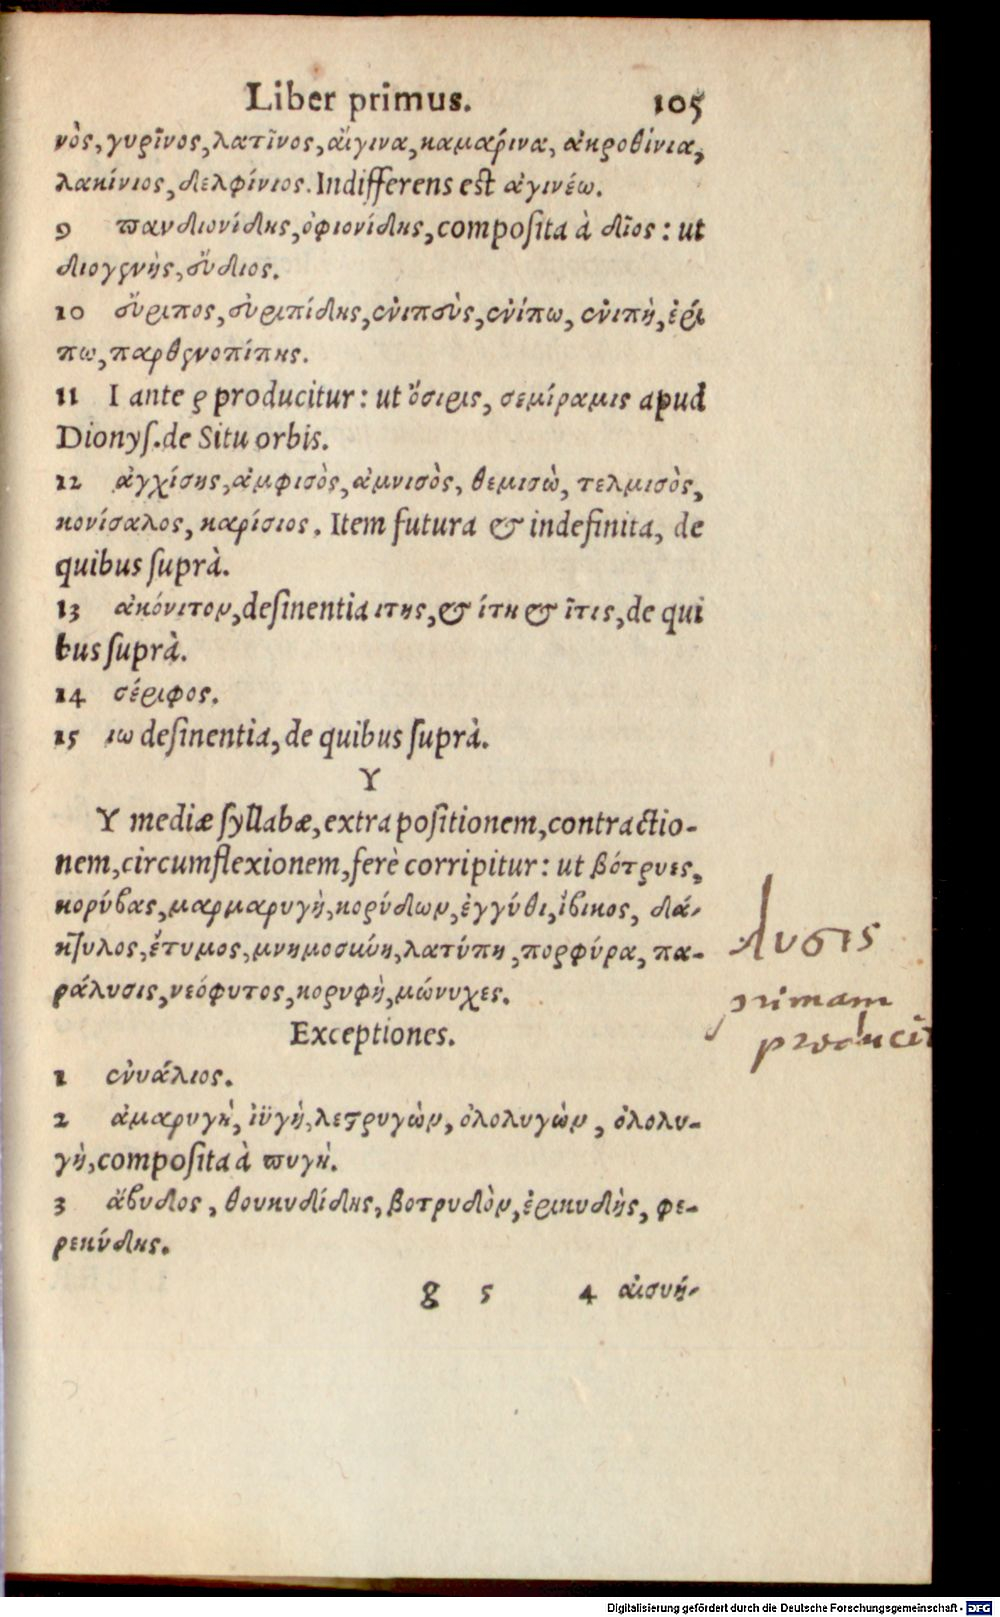 Liber primus. 105
νὸς, γυρῖνος, λατῖνος, αἴγινα, καμαρίνα, ἀκροθίνια,
λακίνιος, δελφίνιος. Indifferens est ἀγινέω.
9 πανδιονίδης, ὀφιονίδης, composita à δῖος: ut
διογενὴς, εὔδιος.
10 εὔριπος, εὐριπίδης, ἐνιπεὺς, ἐνίπω, ἐνιπὴ, ἐρί
πω, παρθενοπίπης.
11 I ante ρ producitur: ut ὄσιρις, σεμίραμις apud
Dionys. de Situ orbis.
12 ἀγχίσης, ἀμφισὸς, ἀμνισὸς, θεμισὼ, τελμισὸς,
κονίσαλος, καρίσιος. Item futura & indefinita, de
quibus suprà.
13 ἀκόνιτον, desinentia ιτης, & ίτη & ῖτις, de qui
bus suprà.
14 σέριφος.
15 ιω desinentia, de quibus suprà.
Υ
Υ mediæ syllabæ, extra positionem, contractio-
nem, circumflexionem, ferè corripitur: ut βότρυες,
κορύβας, μαρμαρυγὴ, κορύδων, ἐγγύθι, ἴβικος, δά-
κτυλος, ἔτυμος, μνημοσύνη, λατύπη, πορφύρα, πα-
ράλυσις, νεόφυτος, κορυφὴ, μώνυχες.
λυσις
primam
producit
Exceptiones.
1 ἐνυάλιος.
2 ἀμαρυγὴ, ἰϋγὴ, λεστρυγὼν, ὀλολυγὼν, ὀλολυ-
γὴ, composita à πυγὴ.
3 ἄβυδος, θουκυδίδης, βοτρυδὸν, ἐρικυδὴς, φε-
ρεκύδης.
g 5 4 αἰσυή-
Digitalisierung gefördert durch die Deutsche Forschungsgemeinschaft - DFG